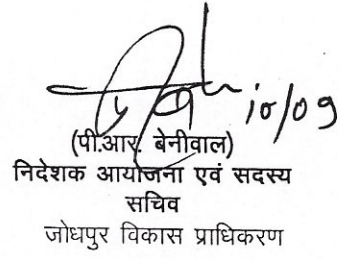 10/09
(पी.आर. बेनीवाल)
निदेशक आयोजना एवं सदस्य
सचिव
जोधपुर विकास प्राधिकरण